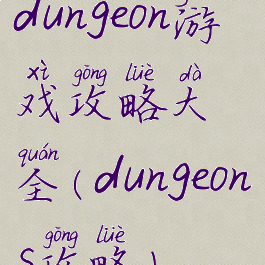 dungeon游
xì gōng lüè dà
戏攻略大
quán
全(dungeon
gōng lüè
S攻略)